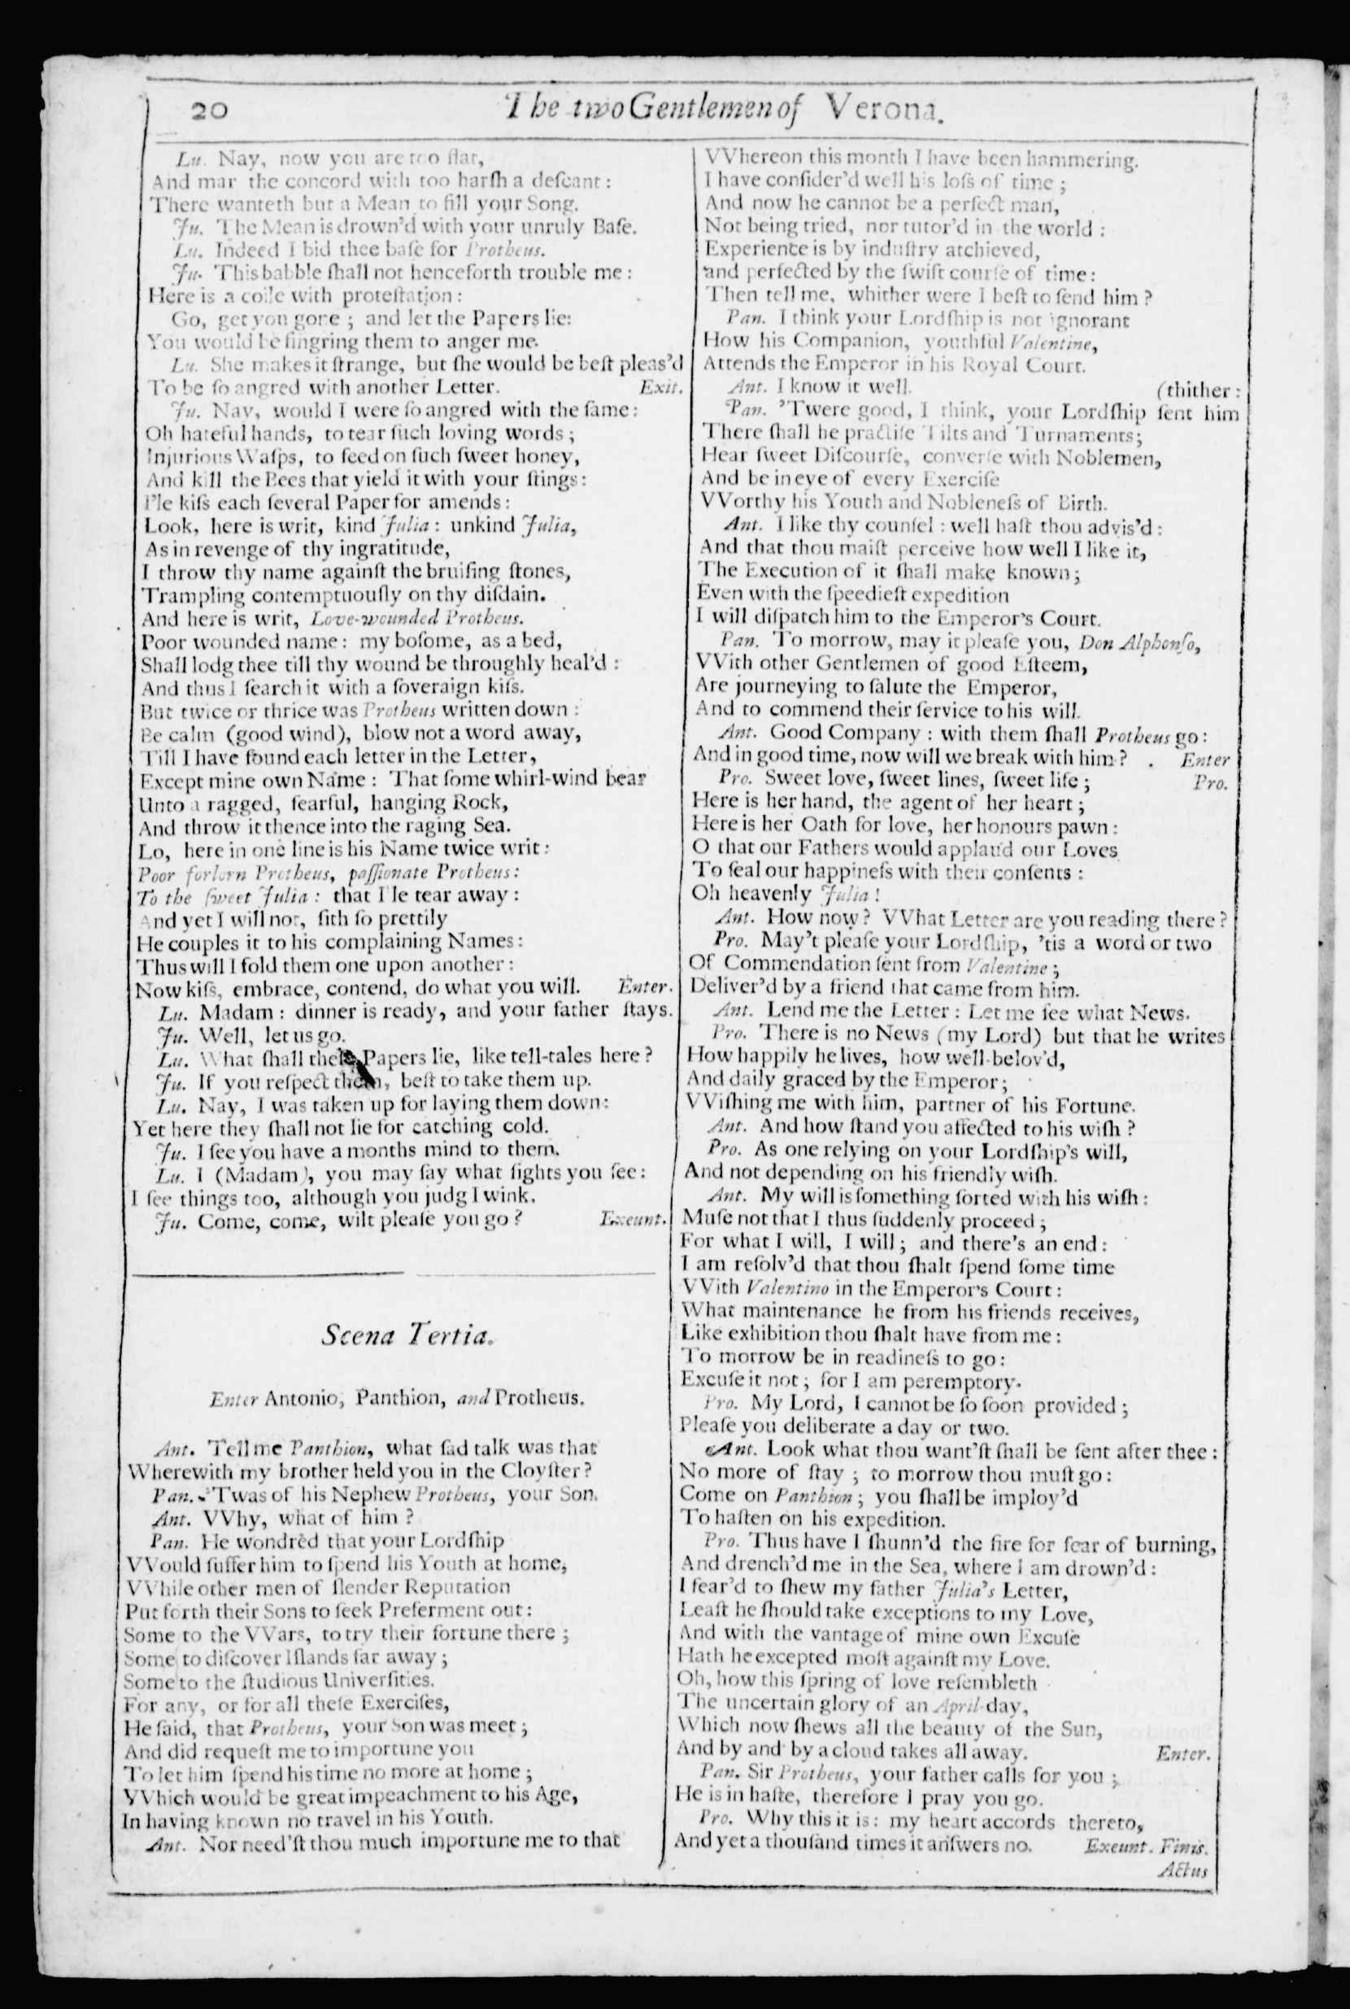 20
The two Gentlemen of Verona.
Lu. Nay, now you are too flat,
And mar the concord with too harſh a deſcant :
There wanteth but a Mean to fill your Song.
Ju. The Mean is drown'd with your unruly Baſe.
Lu. Indeed I bid thee baſe for Protheus.
Ju. This babble ſhall not henceforth trouble me :
Here is a coile with proteſtation :
Go, get you gone ; and let the Papers lie:
You would be fingring them to anger me.
Lu. She makes it ſtrange, but ſhe would be beſt pleas'd
To be ſo angred with another Letter. Exit.
Ju. Nay, would I were ſo angred with the ſame:
Oh hateful hands, to tear ſuch loving words ;
Injurious Waſps, to feed on ſuch ſweet honey,
And kill the Bees that yield it with your ſtings:
I'le kiſs each ſeveral Paper for amends :
Look, here is writ, kind Julia : unkind Julia,
As in revenge of thy ingratitude,
I throw thy name againſt the bruiſing ſtones,
Trampling contemptuouſly on thy diſdain.
And here is writ, Love-wounded Protheus.
Poor wounded name : my boſome, as a bed,
Shall lodg thee till thy wound be throughly heal'd :
And thus I ſearch it with a ſoveraign kiſs.
But twice or thrice was Protheus written down :
Be calm (good wind), blow not a word away,
Till I have found each letter in the Letter,
Except mine own Name : That ſome whirl-wind bear
Unto a ragged, fearful, hanging Rock,
And throw it thence into the raging Sea.
Lo, here in one line is his Name twice writ :
Poor forlorn Protheus, paſſionate Protheus :
To the ſweet Julia : that I'le tear away :
And yet I will not, ſith ſo prettily
He couples it to his complaining Names :
Thus will I fold them one upon another :
Now kiſs, embrace, contend, do what you will. Enter.
Lu. Madam : dinner is ready, and your father ſtays.
Ju. Well, let us go.
Lu. What ſhall theſe Papers lie, like tell-tales here ?
Ju. If you reſpect them, beſt to take them up.
Lu. Nay, I was taken up for laying them down:
Yet here they ſhall not lie for catching cold.
Ju. I ſee you have a months mind to them.
Lu. I (Madam), you may ſay what ſights you ſee :
I ſee things too, although you judg I wink.
Ju. Come, come, wilt pleaſe you go ? Exeunt.
Scena Tertia.
Enter Antonio, Panthion, and Protheus.
Ant. Tell me Panthion, what ſad talk was that
Wherewith my brother held you in the Cloyſter ?
Pan. 'Twas of his Nephew Protheus, your Son.
Ant. VVhy, what of him ?
Pan. He wondred that your Lordſhip
VVould ſuffer him to ſpend his Youth at home,
VVhile other men of ſlender Reputation
Put forth their Sons to ſeek Preferment out :
Some to the VVars, to try their fortune there ;
Some to diſcover Iſlands far away ;
Some to the ſtudious Univerſities.
For any, or for all theſe Exerciſes,
He ſaid, that Protheus, your Son was meet ;
And did requeſt me to importune you
To let him ſpend his time no more at home ;
VVhich would be great impeachment to his Age,
In having known no travel in his Youth.
Ant. Nor need'ſt thou much importune me to that
VVhereon this month I have been hammering.
I have conſider'd well his loſs of time ;
And now he cannot be a perfect man,
Not being tried, nor tutor'd in the world :
Experience is by induſtry atchieved,
and perfected by the ſwift courſe of time :
Then tell me, whither were I beſt to ſend him ?
Pan. I think your Lordſhip is not ignorant
How his Companion, youthful Valentine,
Attends the Emperor in his Royal Court.
Ant. I know it well. (thither :
Pan. 'Twere good, I think, your Lordſhip ſent him
There ſhall he practiſe Tilts and Turnaments;
Hear ſweet Diſcourſe, converſe with Noblemen,
And be in eye of every Exerciſe
VVorthy his Youth and Nobleneſs of Birth.
Ant. I like thy counſel : well haſt thou advis'd :
And that thou maiſt perceive how well I like it,
The Execution of it ſhall make known ;
Even with the ſpeedieſt expedition
I will diſpatch him to the Emperor's Court.
Pan. To morrow, may it pleaſe you, Don Alphonſo,
VVith other Gentlemen of good Eſteem,
Are journeying to ſalute the Emperor,
And to commend their ſervice to his will.
Ant. Good Company : with them ſhall Protheus go :
And in good time, now will we break with him ? . Enter
Pro. Sweet love, ſweet lines, ſweet life ; Pro.
Here is her hand, the agent of her heart ;
Here is her Oath for love, her honours pawn :
O that our Fathers would applaud our Loves
To ſeal our happineſs with their conſents :
Oh heavenly Julia !
Ant. How now ? VVhat Letter are you reading there ?
Pro. May't pleaſe your Lordſhip, 'tis a word or two
Of Commendation ſent from Valentine ;
Deliver'd by a friend that came from him.
Ant. Lend me the Letter : Let me ſee what News.
Pro. There is no News (my Lord) but that he writes
How happily he lives, how well-belov'd,
And daily graced by the Emperor ;
VViſhing me with him, partner of his Fortune.
Ant. And how ſtand you affected to his wiſh ?
Pro. As one relying on your Lordſhip's will,
And not depending on his friendly wiſh.
Ant. My will is ſomething ſorted with his wiſh :
Muſe not that I thus ſuddenly proceed ;
For what I will, I will ; and there's an end :
I am reſolv'd that thou ſhalt ſpend ſome time
VVith Valentino in the Emperor's Court :
What maintenance he from his friends receives,
Like exhibition thou ſhalt have from me :
To morrow be in readineſs to go :
Excuſe it not ; for I am peremptory.
Pro. My Lord, I cannot be ſo ſoon provided ;
Pleaſe you deliberate a day or two.
Ant. Look what thou want'ſt ſhall be ſent after thee :
No more of ſtay ; to morrow thou muſt go :
Come on Panthion ; you ſhall be imploy'd
To haſten on his expedition.
Pro. Thus have I ſhunn'd the fire for fear of burning,
And drench'd me in the Sea, where I am drown'd :
I fear'd to ſhew my father Julia's Letter,
Leaſt he ſhould take exceptions to my Love,
And with the vantage of mine own Excuſe
Hath he excepted moſt againſt my Love.
Oh, how this ſpring of love reſembleth
The uncertain glory of an April-day,
Which now ſhews all the beauty of the Sun,
And by and by a cloud takes all away. Enter.
Pan. Sir Protheus, your father calls for you ;
He is in haſte, therefore I pray you go.
Pro. Why this it is : my heart accords thereto,
And yet a thouſand times it anſwers no. Exeunt. Finis.
Actus